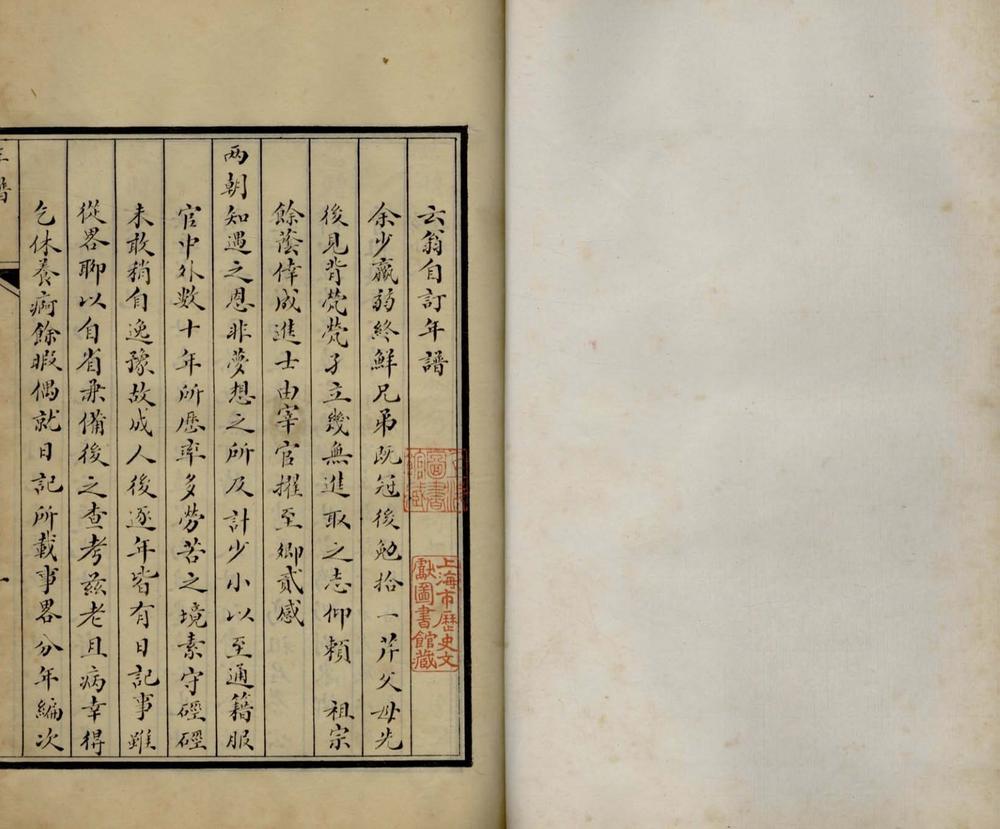 六翁自訂年譜
余少羸弱終鮮兄弟既冠後勉拾一芹父母先
後見背煢煢孑立幾無進取之志仰賴 祖宗
餘蔭倖成進士由宰官擢至卿貳感
兩朝知遇之恩非夢想之所及計少小以至通籍服
官中外數十年所歷率多勞苦之境素守硜硜
未敢稍自逸豫故成人後逐年皆有日記事雖
從畧聊以自省兼備後之查考茲老且病幸得
乞休養痾餘暇偶就日記所載事畧分年編次
年譜
一
上海市歷史文
獻圖書館藏